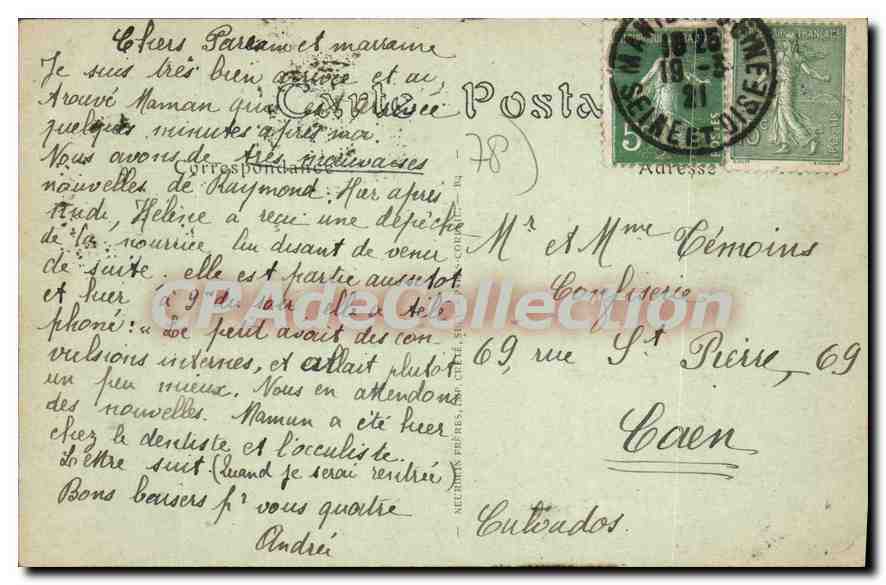 Chers Parrain et marraine
Je suis très bien arrivée et ai
trouvé Maman qui est arrivée
quelques minutes après moi.
Nous avons de très mauvaises
nouvelles de Raymond. Hier après
midi, Hélène a reçu une dépêche
de la nourrice lui disant de venir
de suite. elle est partie aussitôt
et hier à 9h du soir elle a télé
phoné : "Le petit avait des con
vulsions internes, et allait plutôt
un peu mieux. Nous en attendons
des nouvelles. Maman a été hier
chez le dentiste et l'occuliste.
Lettre suit (Quand je serai rentrée)
Bons baisers pr vous quatre
Andrée
Carte Posta
Correspondance
Adresse
78)
NEURDEIN FRÈRES, IMP. CRÉTÉ,
Mr et Mme Témoins
Confiserie
69, rue St Pierre, 69
Caen
Calvados.
5
POSTES
18-25
19-5
21
SEINE ET OISE
CPADeCollection